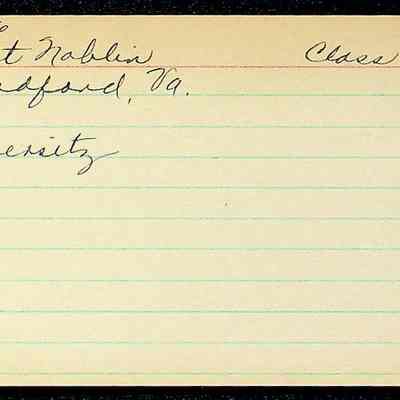 t Noblin Class
dford, Va.
ersity